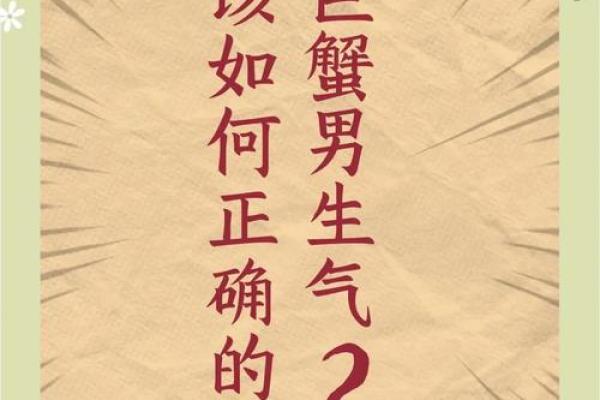 巨蟹男生气?
该如何正确的